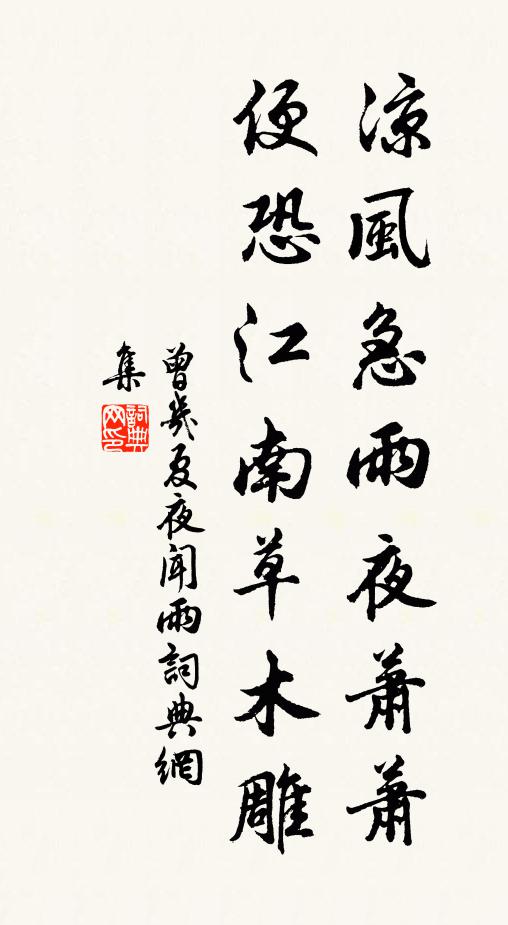 涼風急雨夜蕭蕭
便恐江南草木雕
曾幾夏夜聞雨詞典網
集
詞典网印